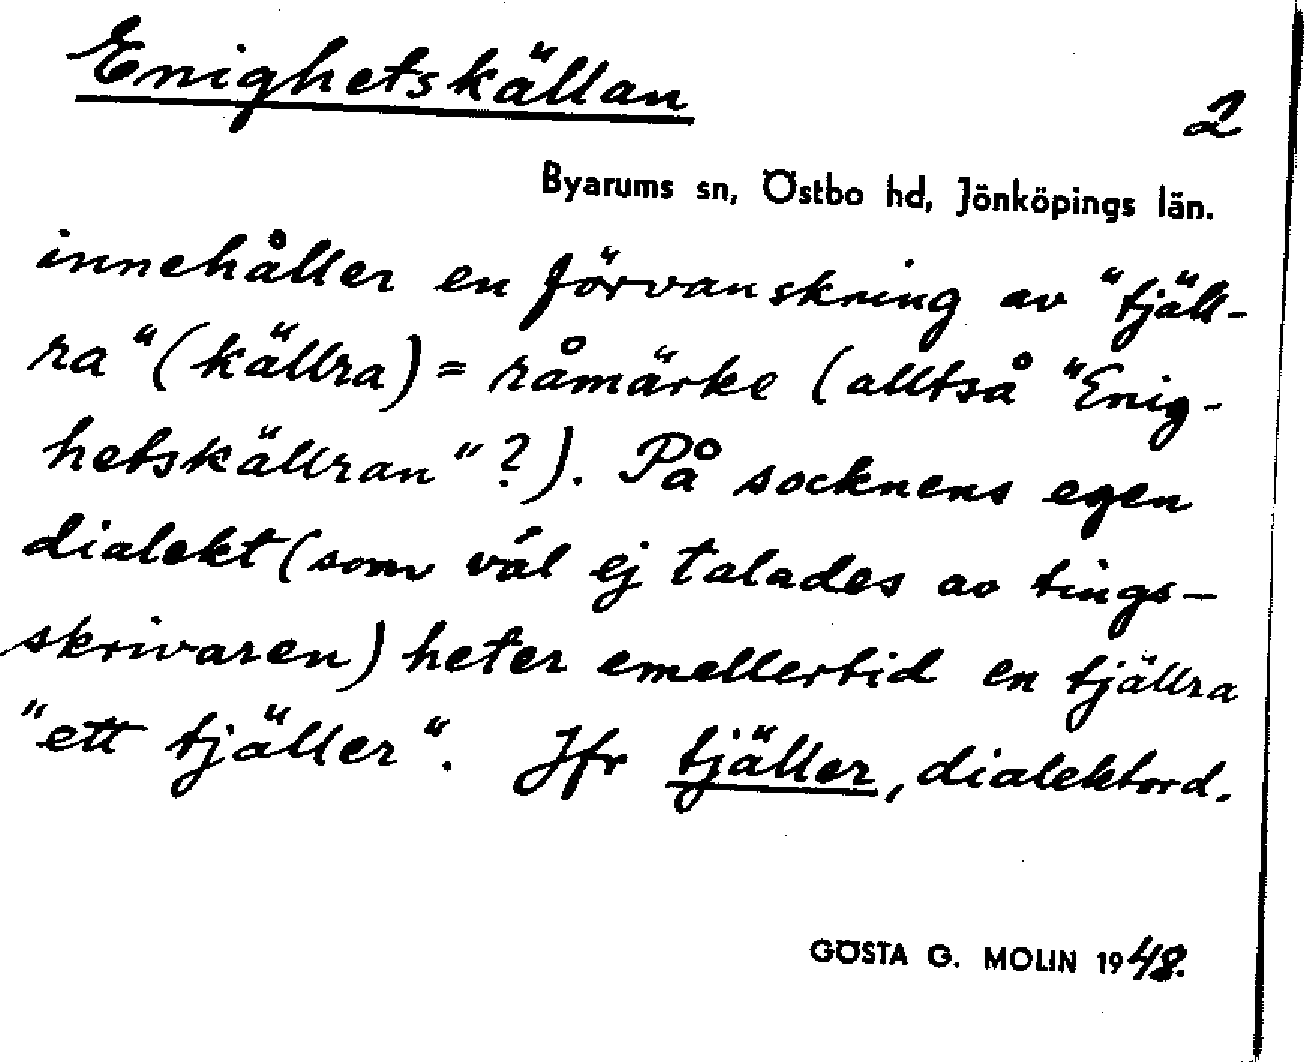 Enighetskällan
2
Byarums sn, Östbo hd, Jönköpings län.
innehåller en förvanskning av "tjäll-
ra" (källra) = råmärke (alltså "Enig-
hetskällran"?). På socknens egen
dialekt (som väl ej talades av tings-
skrivaren) heter emellertid en tjällra
"ett tjäller". Jfr tjäller, dialektord.
GÖSTA G. MOLIN 1948.